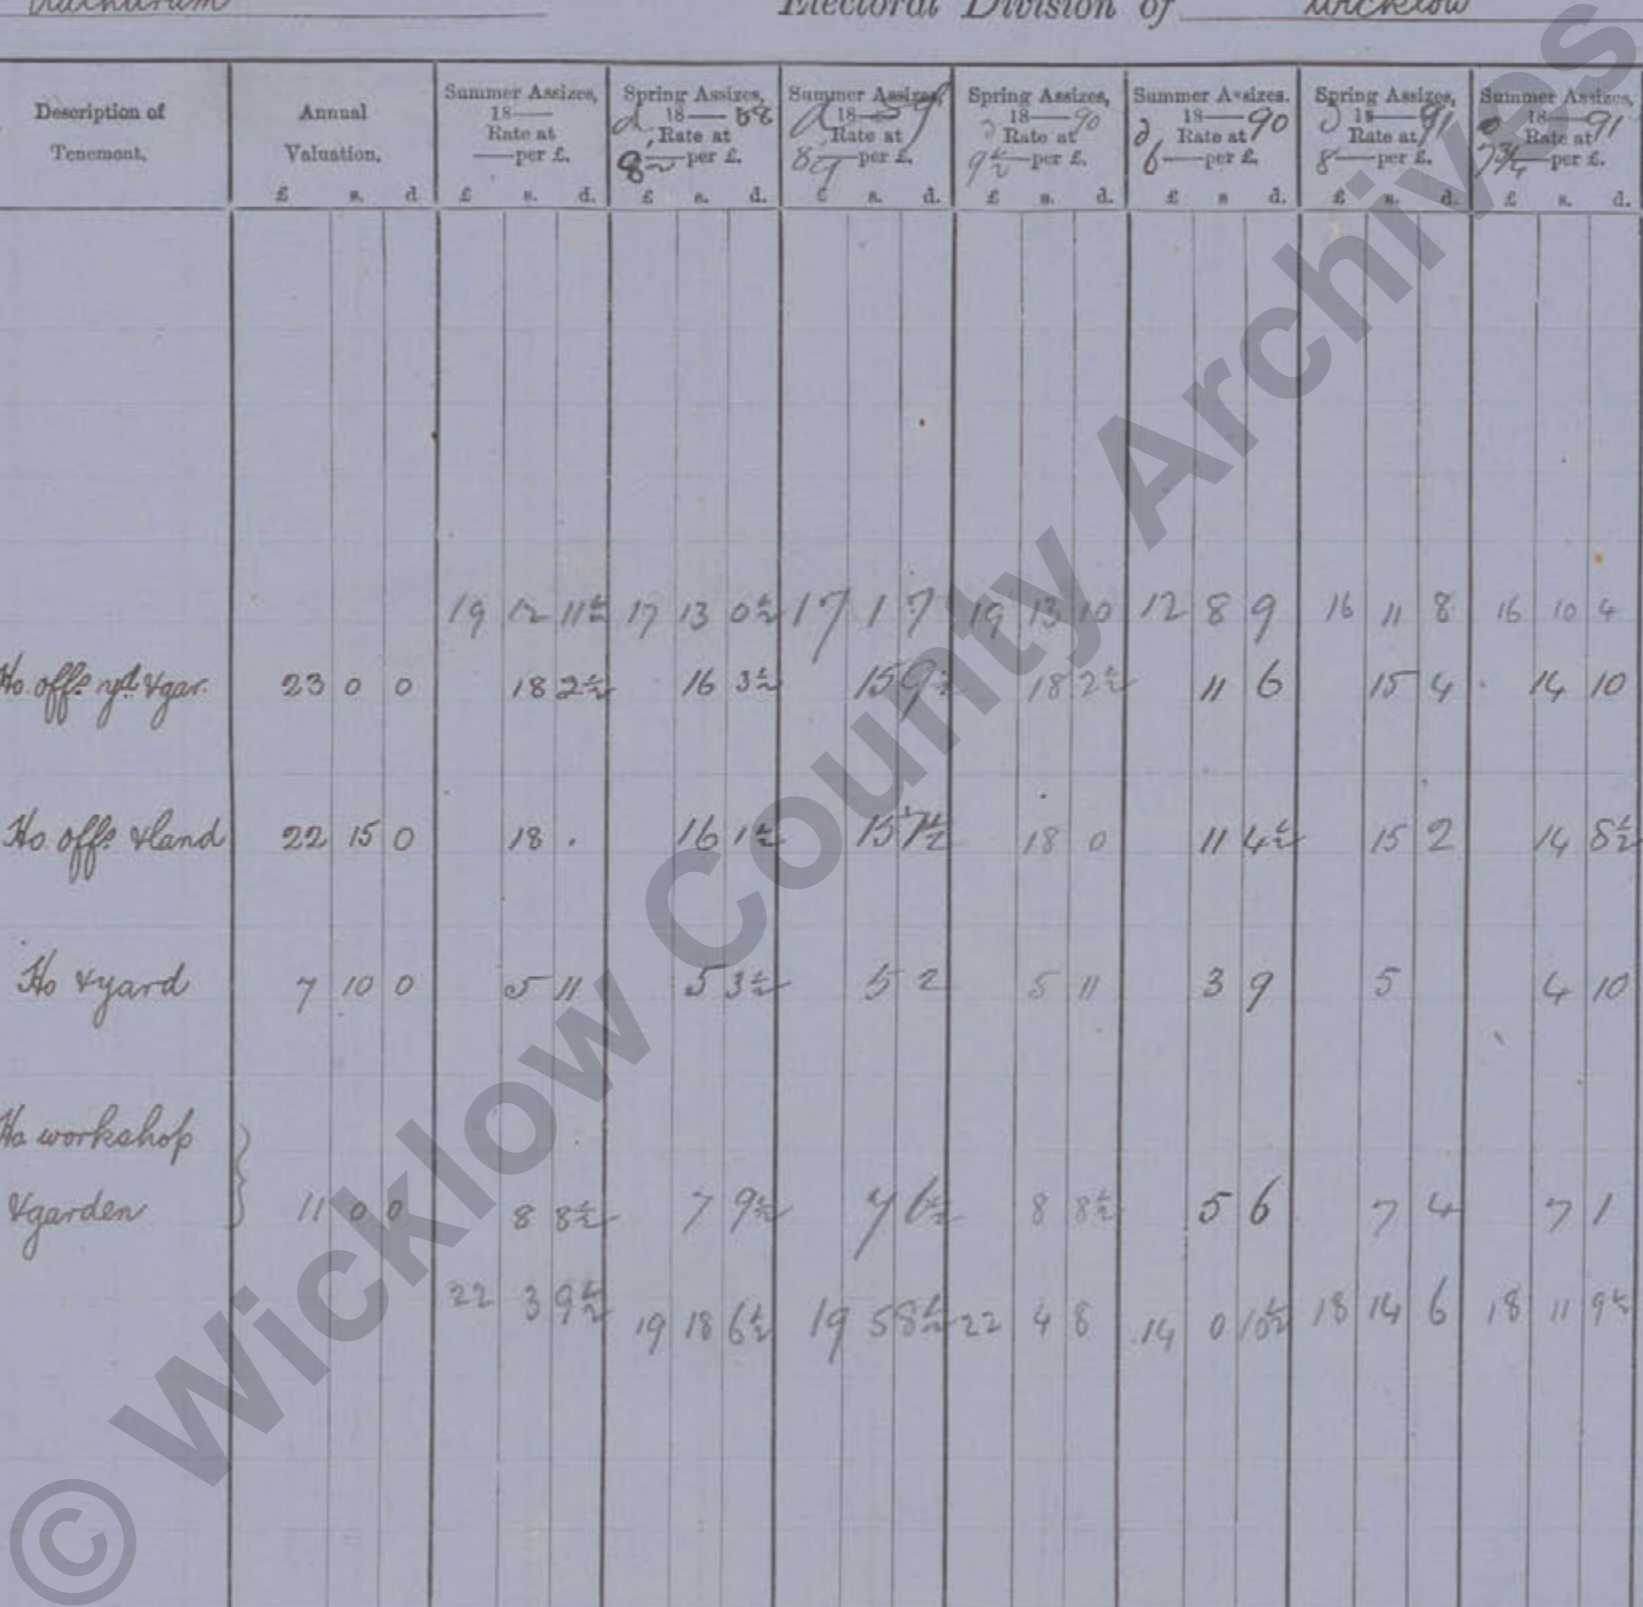 Rathdrum Electoral Division of Wicklow
Description of Tenement. Annual Valuation. Summer Assizes, 18— Rate at —per £. Spring Assizes, 18— 88 Rate at 8½ d —per £. Summer Assizes, 18— 89 Rate at 8¼ d —per £. Spring Assizes, 18— 90 Rate at 9½ d —per £. Summer Assizes. 18— 90 Rate at 6 d —per £. Spring Assizes, 18— 91 Rate at 8 d —per £. Summer Assizes, 18— 91 Rate at 7¾ d —per £.
£ s. d £ s. d. £ s. d. £ s. d. £ s. d. £ s d. £ s. d. £ s. d.
19 12 11½ 17 13 0½ 17 1 7 19 13 10 12 8 9 16 11 8 16 10 4
Ho. offs yd & gar. 23 0 0 18 2½ 16 3½ 15 9½ 18 2½ 11 6 15 4 14 10
Ho offs & land 22 15 0 18 . 16 1½ 15 7½ 18 0 11 4½ 15 2 14 8½
Ho & yard 7 10 0 5 11 5 3½ 5 2 5 11 3 9 5 4 10
Ho workshop
& garden 11 0 0 8 8½ 7 9½ 7 6½ 8 8½ 5 6 7 4 7 1
22 3 9½ 19 18 6½ 19 5 8½ 22 4 8 14 0 10½ 18 14 6 18 11 9½
© Wicklow County Archives